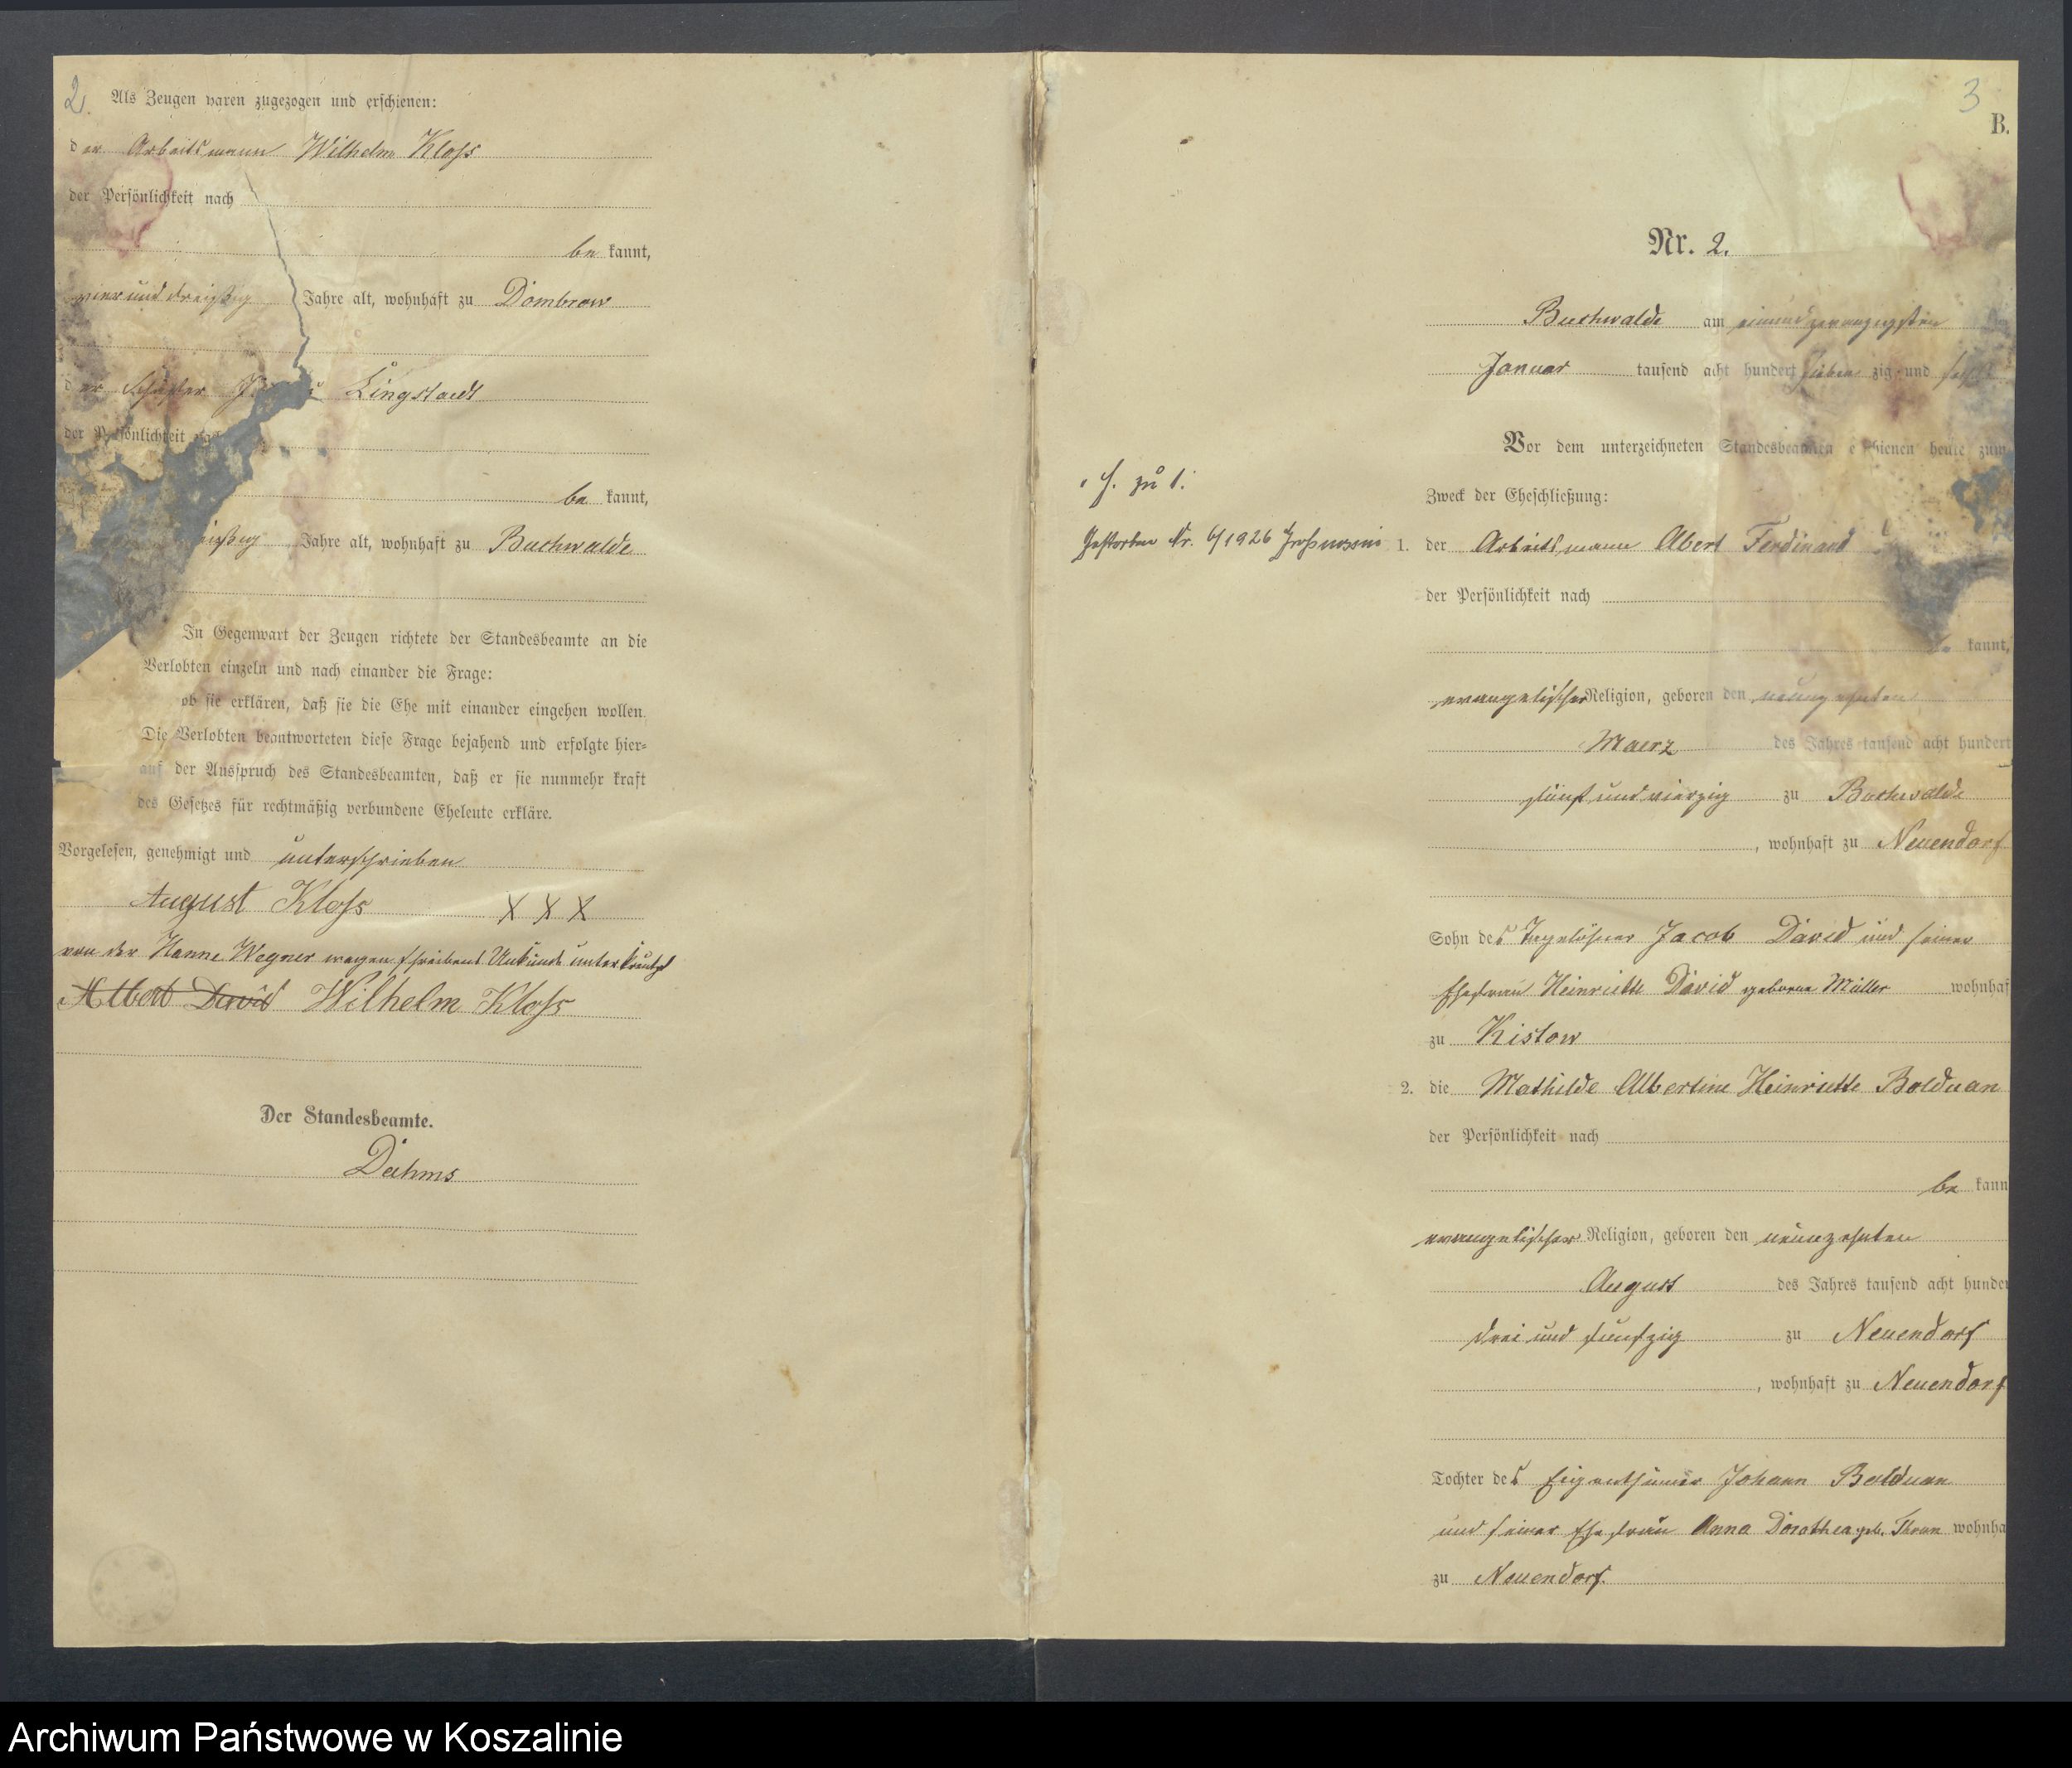 2.
Als Zeugen waren zugezogen und erschienen:
der Arbeitsmann Wilhelm Kloss
der Persönlichkeit nach
be kannt,
vier und dreißig Jahre alt, wohnhaft zu Dombrow
der Schäfer Lingstaedt
der Persönlichkeit
be kannt,
eißig Jahre alt, wohnhaft zu Buchwalde
In Gegenwart der Zeugen richtete der Standesbeamte an die
Verlobten einzeln und nach einander die Frage:
ob sie erklären, daß sie die Ehe mit einander eingehen wollen.
Die Verlobten beantworteten diese Frage bejahend und erfolgte hier=
auf der Ausspruch des Standesbeamten, daß er sie nunmehr kraft
des Gesetzes für rechtmäßig verbundene Eheleute erkläre.
Vorgelesen, genehmigt und unterschrieben
August Kloss XXX
von der Hanne Wegner wegen schreibens Unkunde unterkreuzt
Albert David Wilhelm Kloss
Der Standesbeamte.
Dahms
3
B.
Nr. 2.
Buchwalde am einundzwanzigsten
Januar tausend acht hundert sieben zig und sechs
Vor dem unterzeichneten Standesbeamten erschienen heute zum
Zweck der Eheschließung:
H. zu 1.
Gestorben Nr. 6/1926 Großnossin
1. der Arbeitsmann Albert Ferdinand
der Persönlichkeit nach
kannt,
evangelischer Religion, geboren den neunzehnten
Maerz des Jahres tausend acht hundert
fünf und vierzig zu Buchwalde
, wohnhaft zu Neuendorf
Sohn des Tagelöhner Jacob David und seiner
Ehefrau Heinriette David geborne Müller wohnhaf
zu Kistow
2. die Mathilde Albertine Heinriette Bolduan
der Persönlichkeit nach
be kann
evangelischer Religion, geboren den neunzehnten
August des Jahres tausend acht hunder
drei und fünfzig zu Neuendorf
, wohnhaft zu Neuendorf
Tochter des Eigenthümer Johann Bolduan
und seiner Ehefrau Anna Dorothea geb. Thrun wohnha
zu Neuendorf.
Archiwum Państwowe w Koszalinie